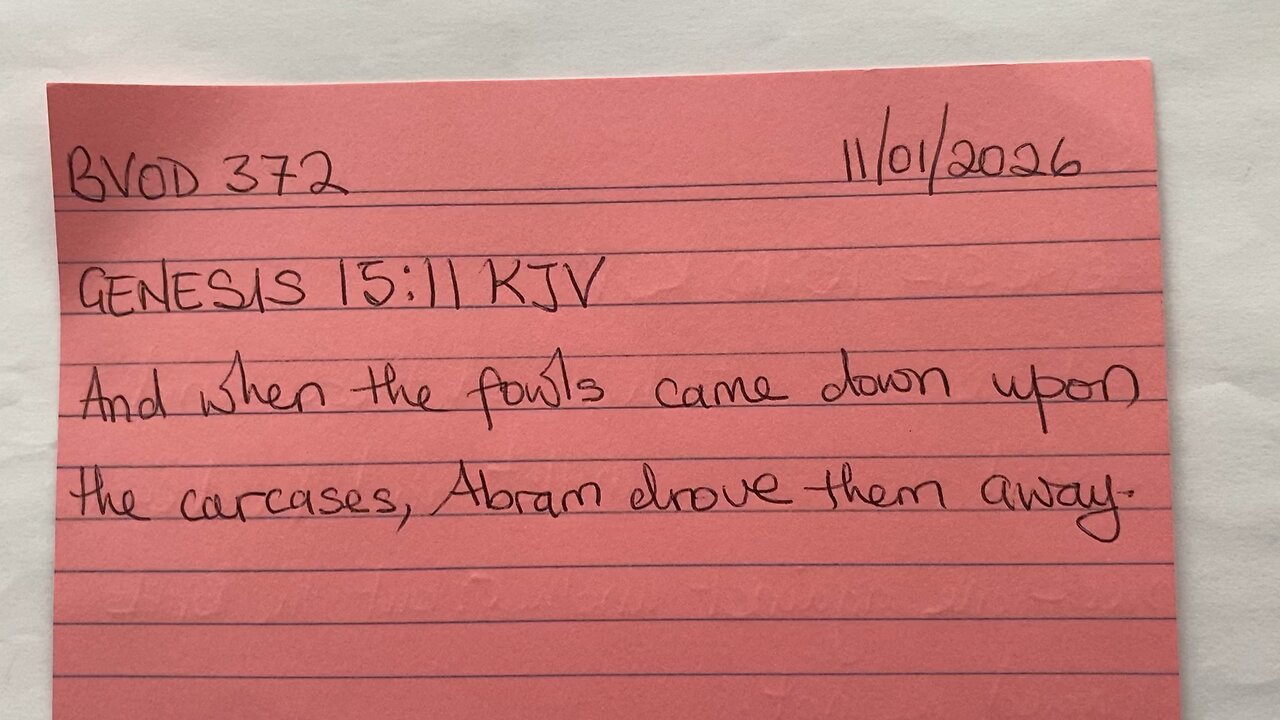 BVOD 372
11/01/2026
GENESIS 15:11 KJV
And when the fowls came down upon
the carcases, Abram drove them away.